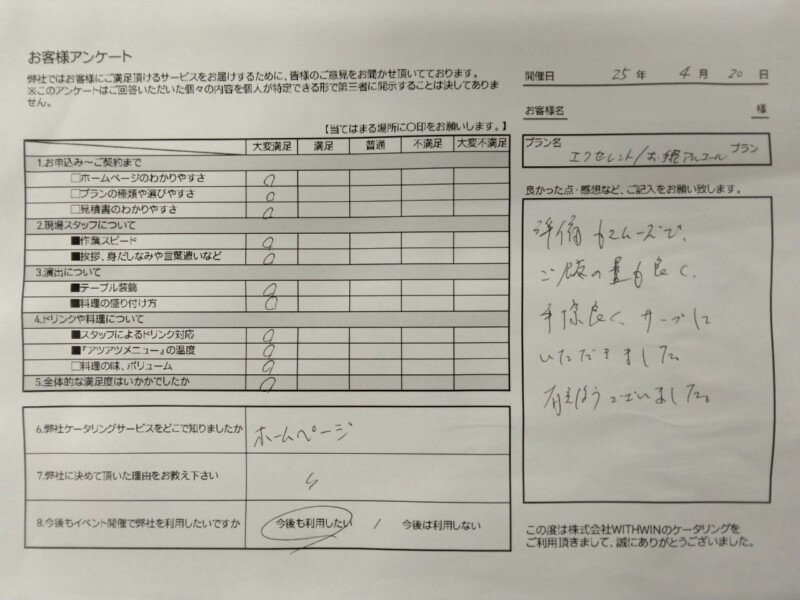 お客様アンケート
弊社ではお客様にご満足頂けるサービスをお届けするために、皆様のご意見をお聞かせ頂いております。
※このアンケートはご回答いただいた個々の内容を個人が特定できる形で第三者に開示することは決してありま
せん。
【当てはまる場所に〇印をお願いします。】
大変満足 満足 普通 不満足 大変不満足
1.お申込み～ご契約まで
□ホームページのわかりやすさ ○
□プランの種類や選びやすさ ○
□見積書のわかりやすさ ○
2.現場スタッフについて
■作業スピード ○
■挨拶、身だしなみや言葉遣いなど ○
3.演出について
■テーブル装飾 ○
■料理の盛り付け方 ○
4.ドリンクや料理について
■スタッフによるドリンク対応 ○
■『アツアツメニュー』の温度 ○
□料理の味、ボリューム ○
5.全体的な満足度はいかがでしたか ○
6.弊社ケータリングサービスをどこで知りましたか ホームページ
7.弊社に決めて頂いた理由をお教え下さい
8.今後もイベント開催で弊社を利用したいですか 今後も利用したい / 今後は利用しない
開催日 25 年 4 月 20 日
お客様名 様
プラン名 エクセレント/お軽アルコール プラン
良かった点・感想など、ご記入をお願い致します。
準備もスムーズで、
ご飯の量も良く、
手際良く、サーブして
いただきました。
有難うございました。
この度は株式会社WITHWINのケータリングを
ご利用頂きまして、誠にありがとうございました。